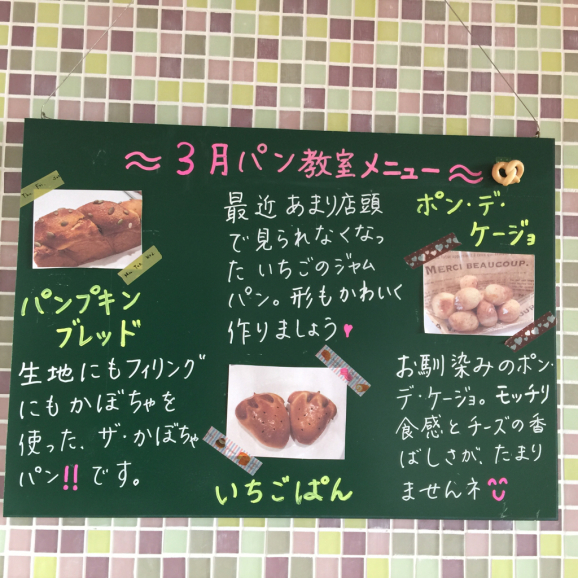 ≈3月パン教室メニュー≈
パンプキン
ブレッド
生地にもフィリング
にもかぼちゃを
使った、ザ・かぼちゃ
パン!!です。
最近あまり店頭
で見られなくなっ
たいちごのジャム
パン。形もかわいく
作りましょう♥
いちごぱん
ポン・デ・
ケージョ
MERCI BEAUCOUP.
お馴染みのポン・
デ・ケージョ。モッチリ
食感とチーズの香
ばしさが、たまり
ませんネ